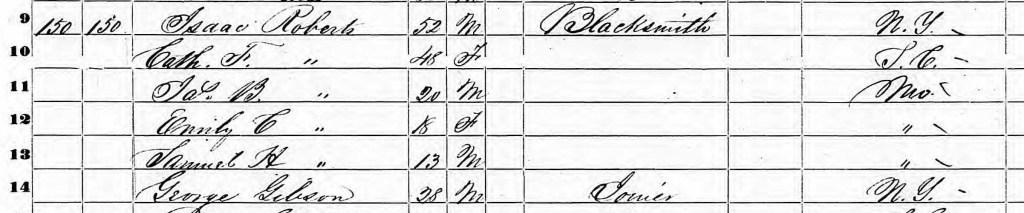 9 150 150 Isaac Roberts 52 M Blacksmith N. Y.
10 Cath. F. " 48 F S. C.
11 Jas. B. " 20 M Mo.
12 Emily C " 18 F "
13 Samuel H " 13 M "
14 George Gibson 28 M Joiner N. Y.